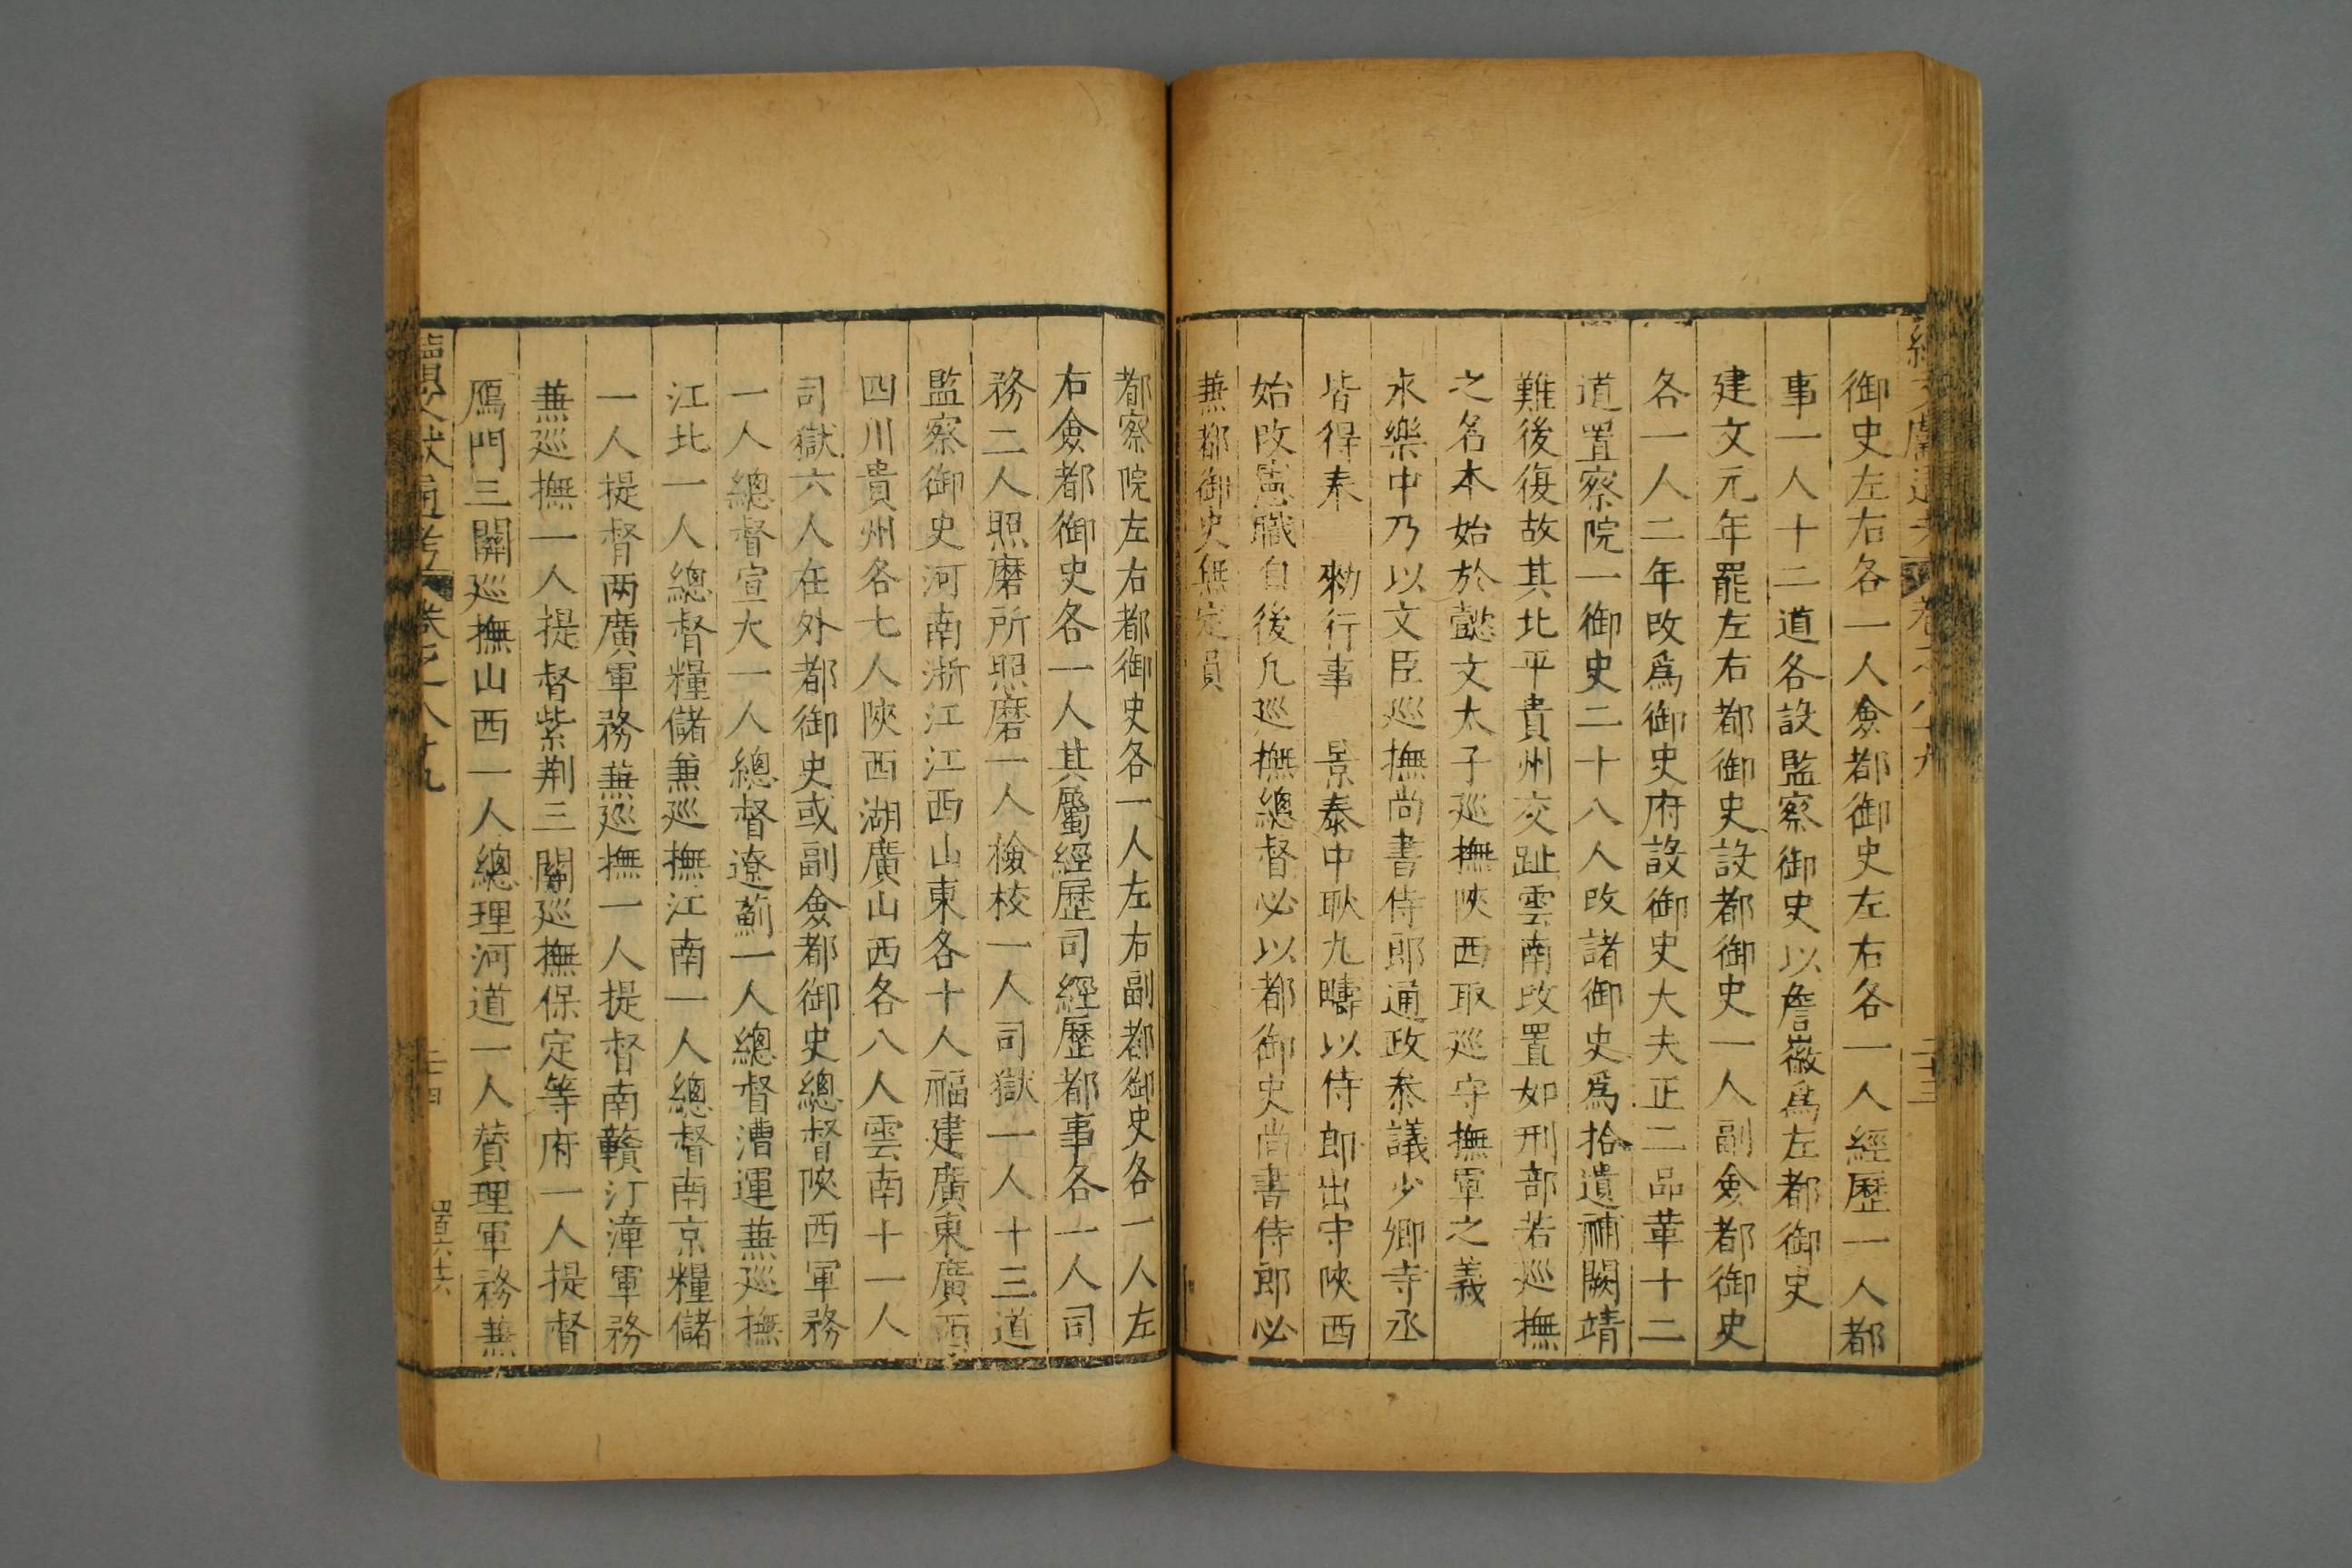 御史左右各一人僉都御史左右各一人經歷一人都
事一人十二道各設監察御史以詹徽爲左都御史
建文元年罷左右都御史設都御史一人副僉都御史
各一人二年改爲御史府設御史大夫正二品革十二
道置察院一御史二十八人改諸御史爲拾遺補闕靖
難後復故其北平貴州交趾雲南改置如刑部若巡撫
之名本始於懿文太子巡撫陜西取巡守撫軍之義
永樂中乃以文臣巡撫尚書侍郎通政叅議少卿寺丞
皆得奉 勑行事 景泰中耿九疇以侍郎出守陜西
始改憲職自後凡巡撫總督必以都御史尚書侍郎必
兼都御史無定員
都察院左右都御史各一人左右副都御史各一人左
右僉都御史各一人其屬經歷司經歷都事各一人司
務二人照磨所照磨一人檢校一人司獄一人十三道
監察御史河南浙江江西山東各十人福建廣東廣西
四川貴州各七人陜西湖廣山西各八人雲南十一人
司獄六人在外都御史或副僉都御史總督陜西軍務
一人總督宣大一人總督遼薊一人總督漕運兼巡撫
江北一人總督糧儲兼巡撫江南一人總督南京糧儲
一人提督两廣軍務兼巡撫一人提督南贛汀漳軍務
兼巡撫一人提督紫荆三關巡撫保定等府一人提督
鴈門三關巡撫山西一人總理河道一人贊理軍務兼